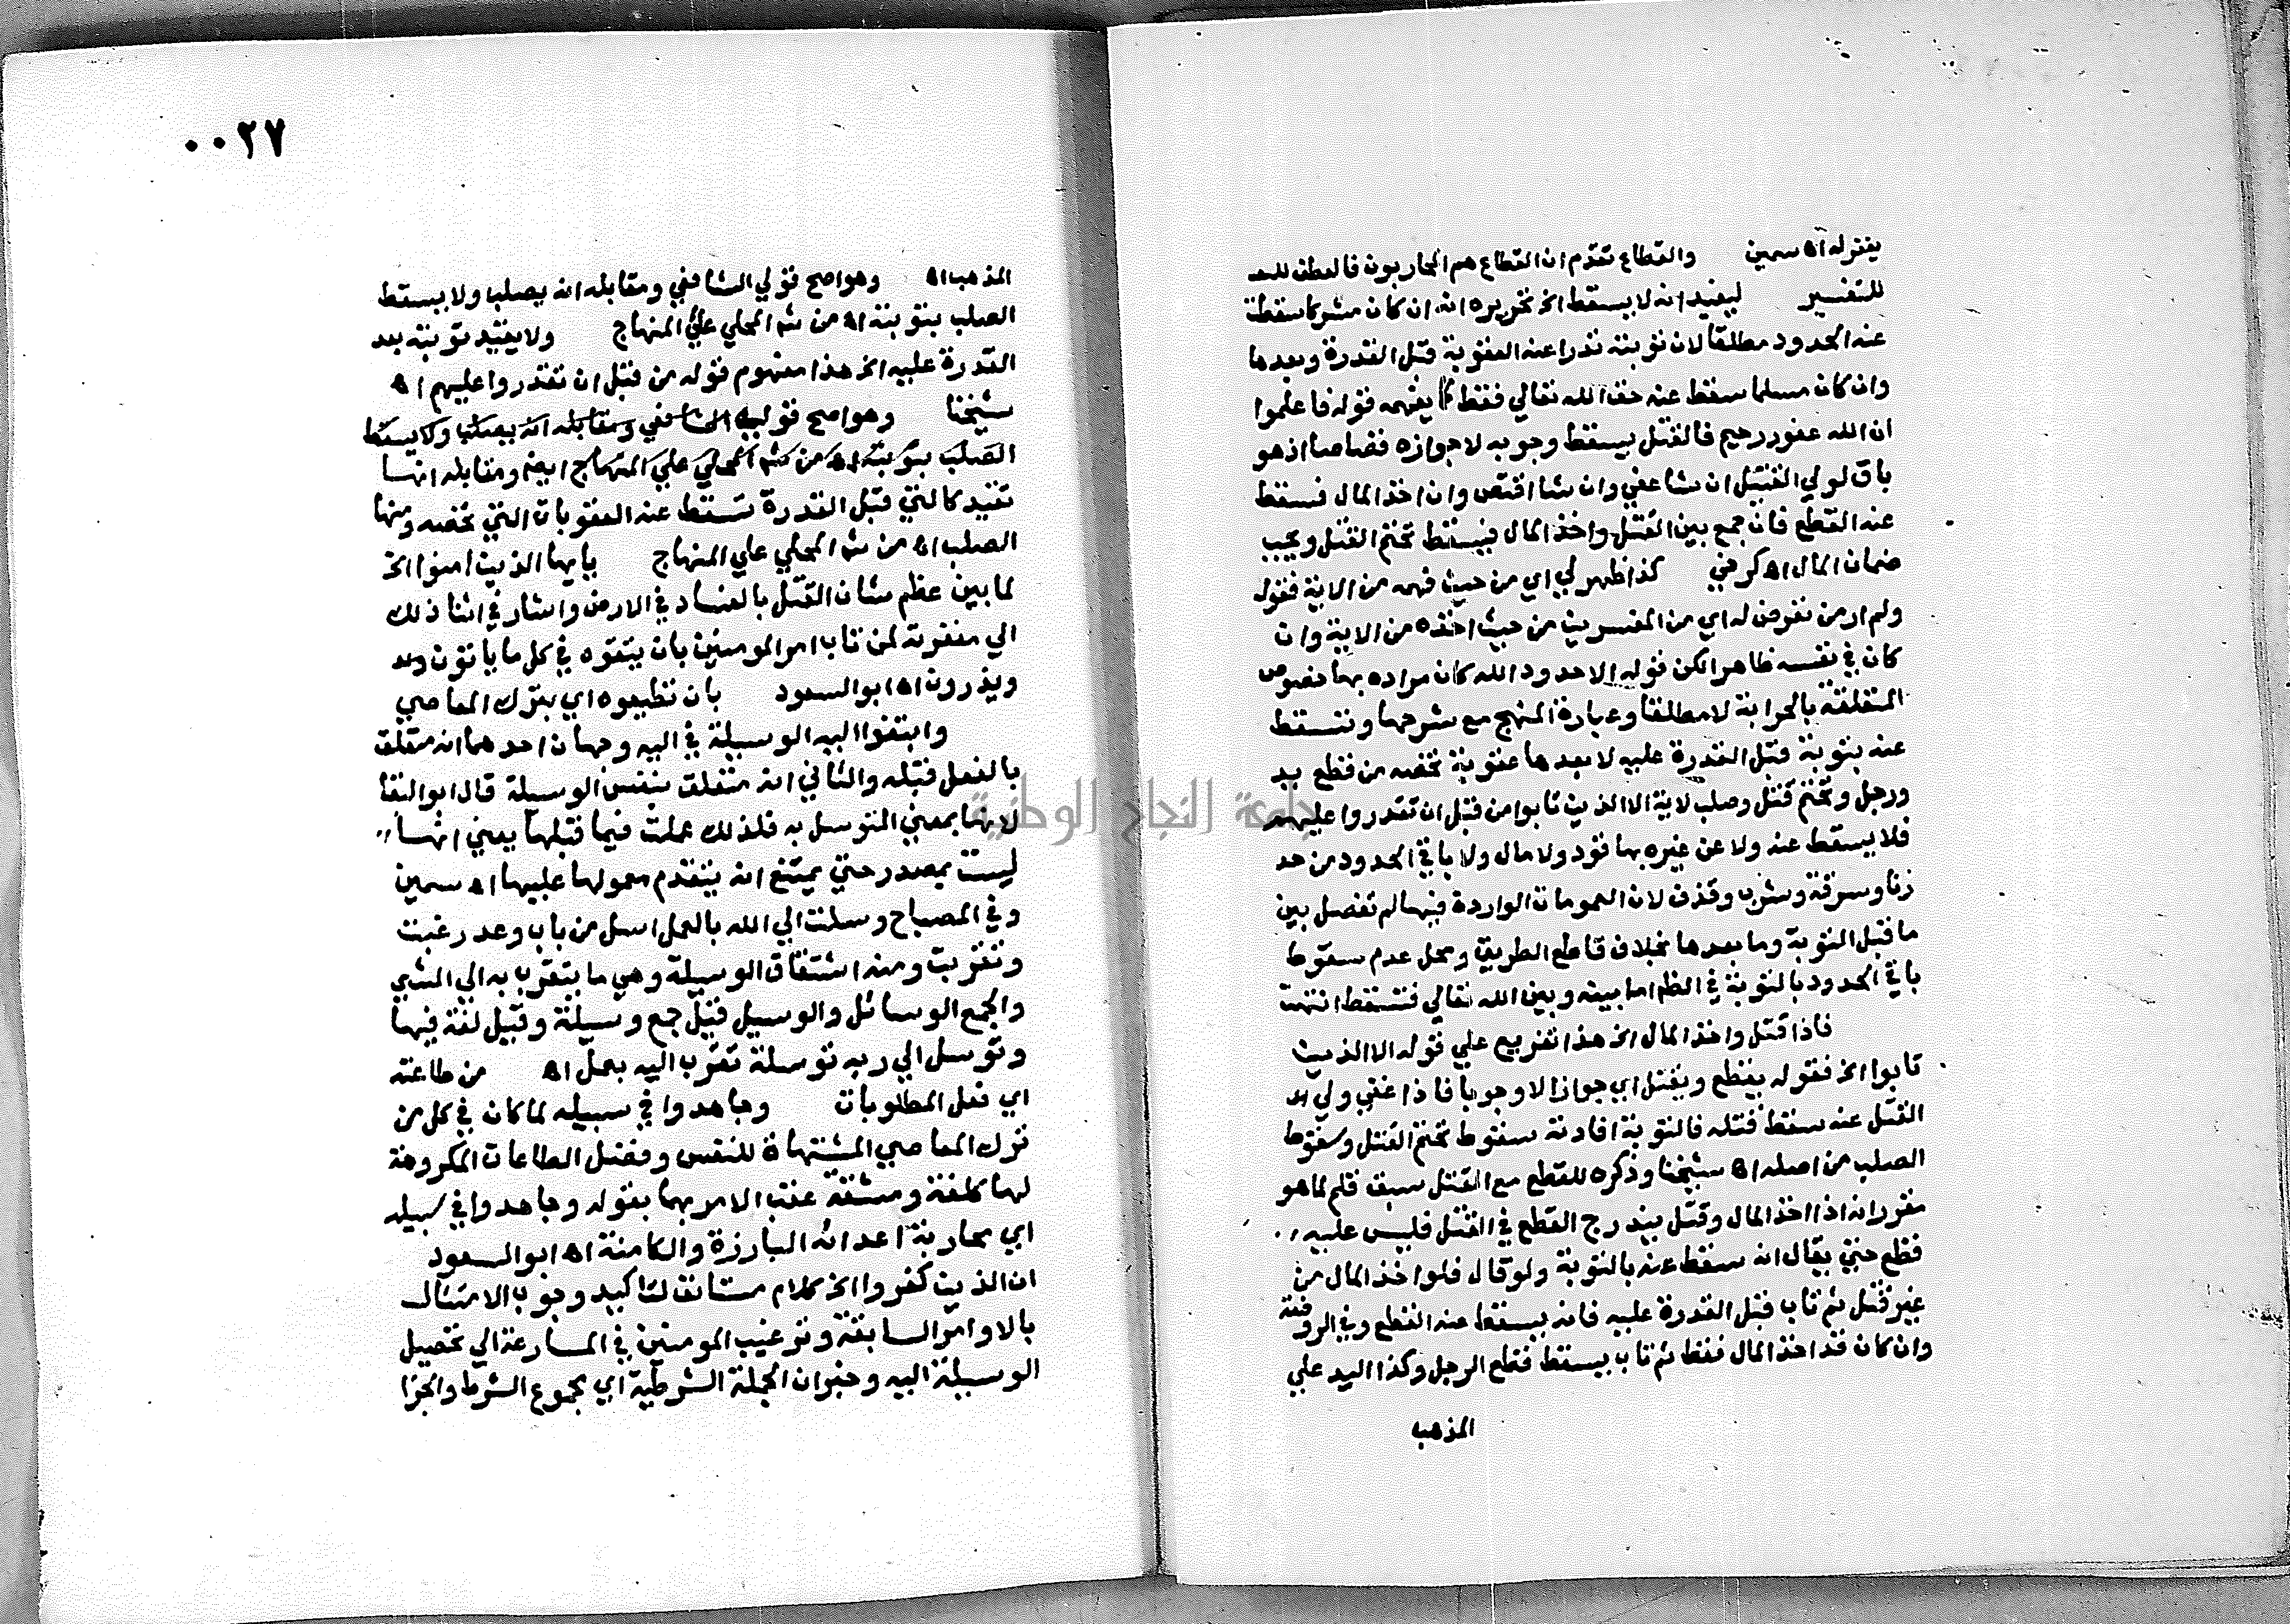 يغتر له اه سمين والقطاع تقدم ان القطاع هم المحاربون فالعطف للتفـ
للتفسير ليفيد انه لا يسقط الخ تحريره انه ان كان مشركا سقطت
عنه الحدود مطلقا لان توبته تدرا عنه العقوبة قبل القدرة وبعدها
وان كان مسلما سقط عنه حق الله تعالي فقط كما يفهمه قوله فاعلموا
ان الله غفور رحيم فالقتل يسقط وجوبه لا جوازه قصاصا اذ هو
باق لولي القتيل ان شا عفي وان شا اقتص وان اخذ المال فسقط
عنه القطع فان جمع بين القتل واخذ المال فيسقط تحتم القتل ويجب
ضمان المال اه كرخي كذا ظهر لي اي من حيث فهمه من الاية فقوله
ولم ار من تعرض له اي من المفسرين من حيث اخذه من الاية وان
كان في نفسه ظاهرا لكن قوله الا حدود الله كان مراده بها خصوص
المتعلقة بالحرابة لا مطلقا وعبارة المنهج مع شرحها وتسقط
عنه بتوبة قبل القدرة عليه لا بعدها عقوبة تخصه من قطع يد
ورجل وتحتم قتل وصلب لاية الا الذين تابوا من قبل ان تقدروا عليهم
فلا يسقط عنه ولا عن غيره بها قود ولا مال ولا باقي الحدود من حد
زنا وسرقة وشرب وقذف لان العمومات الواردة فيها لم تفصل بين
ما قبل التوبة وما بعدها بخلاف قاطع الطريق ومحل عدم سقوط
باقي الحدود بالتوبة في الظاهر اما بينه وبين الله تعالي فتسقط انتهت
فاذا قتل واخذ المال الخ هذا تفريع علي قوله الا الذين
تابوا الخ فقوله يقطع ويقتل اي جوازا لا وجوبا فاذا عفي ولي
القتل عنه سقط قتله فالتوبة افادته سقوط تحتم القتل وسقوط
الصلب من اصله اه شيخنا وذكره للقطع مع القتل سبق قلم لما هو
مقرر انه اذا اخذ المال وقتل يندرج القطع في القتل فليس عليه
قطع حتي يقال انه سقط عنه بالتوبة ولو قال فلو اخذ المال من
غير قتل ثم تاب قبل القدرة عليه فانه يسقط عنه القطع وفي الروضة
وان كان قد اخذ المال فقط ثم تاب يسقط قطع الرجل وكذا اليد علي
المذهب
٠٠٢٧
المذهب اه وهو اصح قولي الشافعي ومقابله انه يصلب ولا يسقط
الصلب بتوبته اه من شم المحلي علي المنهاج ولا يفيد توبته بعد
القدرة عليه الخ هذا مفهوم قوله من قبل ان تقدروا عليهم اه
شيخنا وهو اصح قوليه الشافعي ومقابله انه يصلب ولا يسقط
الصلب بتوبته اه من شم المحلي علي المنهاج ايضا ومقابله انها
تفيد كالتي قبل القدرة تسقط عنه العقوبات التي تخصه ومنها
الصلب اه من شم المحلي علي المنهاج يايها الذين امنوا الخ
لما بين عظم شان القتل بالفساد في الارض واشار في اثنا ذلك
الي مغفرته لمن تاب امر المومنين بان يتقوه في كل ما ياتون
ويذرون اه ابو السعود بان تطيعوه اي بترك المعاصي
وابتغوا اليه الوسيلة في اليه وجهان احدهما انه متعلق
بالفعل قبله والثاني انه متعلق بنفس الوسيلة قال ابو البقا
لانها بمعني المتوسل به فلذلك عملت فيما قبلها يعني انها
ليست بمصدر حتي يمتنع انه يتقدم معمولها عليها اه سمين
وفي المصباح وسلت الي الله بالعمل اسل من باب وعد رغبت
وتقربت ومنه اشتقاق الوسيلة وهي ما يتقرب به الي الشي
والجمع الوسائل والوسيل قيل جمع وسيلة وقيل لغة فيها
وتوسل الي ربه توسلة تقرب اليه بعمل اه من طاعته
اي فعل المطلوبات وجاهدوا في سبيله لما كان في كل من
ترك المعاصي المشتهاة للنفس وفعل الطاعات المكروهة
لها كلفة ومشقة عقب الامر بهما بقوله وجاهدوا في سبيله
اي محاربة اعدائه البارزة والكامنة اه ابو السعود
ان الذين كفروا الخ كلام مستانف لتاكيد وجوب الامتثال
بالاوامر السابقة وترغيب المومنين في المسارعة الي تحصيل
الوسيلة اليه وخبر ان الجملة الشرطية اي مجموع الشرط والجزا
جامعة النجاح الوطنية